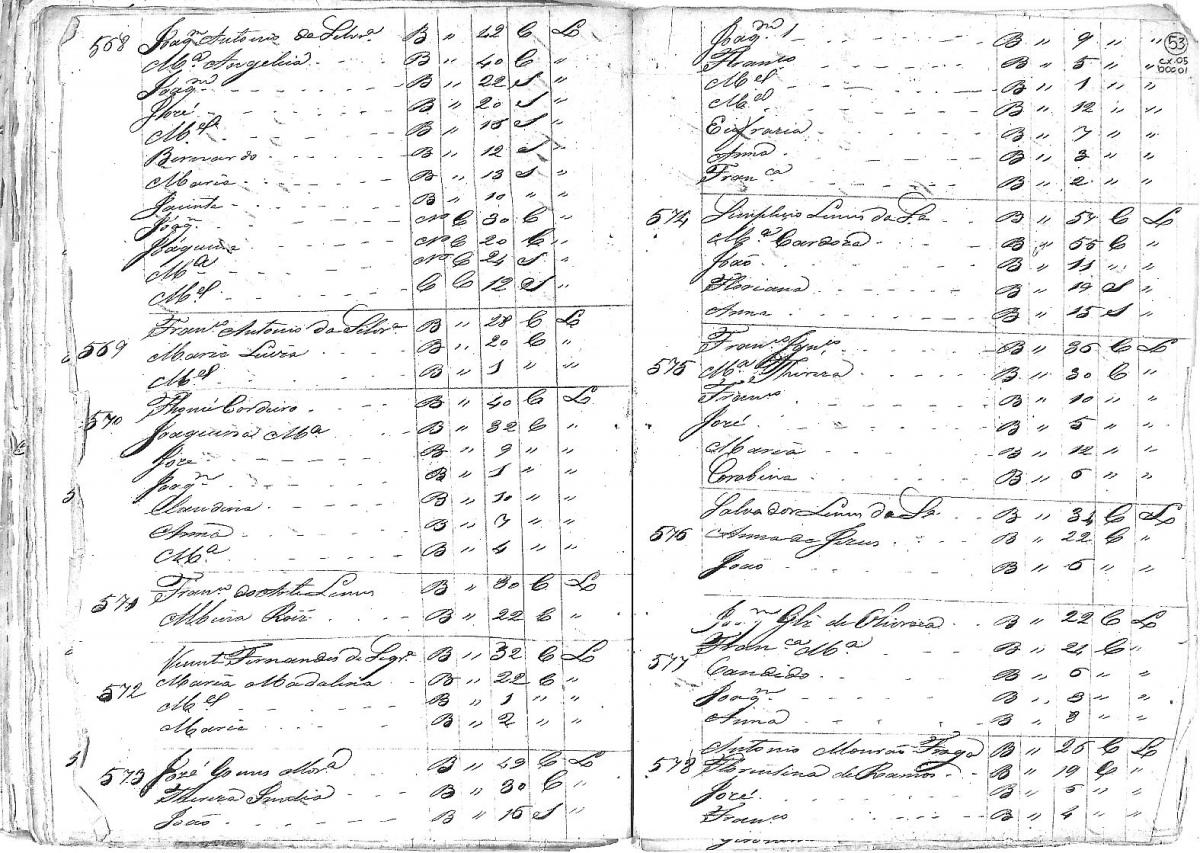 568 Joaqm Antonio da Silvra B " 42 C L
Ma Angelica B " 40 C "
Joaqm B " 22 S "
José B " 20 S "
Mel B " 15 S "
Bernardo B " 12 S "
Maria B " 13 S "
Jacinta B " 10 " "
Joaqm C 30 C "
Joaquina C 20 C "
Ma C 24 S "
Mel C C 12 S "
569 Franco Antonio da Silvra B " 28 C L
Maria Luiza B " 20 C "
Mel B " 1 " "
570 Thomé Cordeiro B " 40 C L
Joaquina Ma B " 32 C "
José B " 9 " "
Joaqm B " 1 " "
Claudina B " 10 " "
Anna B " 7 " "
Ma B " 4 " "
571 Franco B " 30 C L
Roiz B " 22 C "
Vicente Fernandes de Siqra B " 32 C L
572 Maria Madalena B " 22 C "
Mel B " 1 " "
Maria B " 2 " "
573 José Gomes Morа B " 49 C L
Thereza B " 30 C "
João B " 16 S "
53
cx.05
00001
Joaqm B " 9 " "
Franco B " 5 " "
Mel B " 1 " "
B " 12 " "
Eufrazia B " 7 " "
Anna B " 3 " "
Franca B " 2 " "
574 Simplicio Lemes da Sa B " 57 C L
Ma Cardoza B " 55 C "
João B " 11 " "
Floriana B " 19 S "
Anna B " 15 S "
Franco B " 36 C L
575 Ma Thereza B " 30 C "
Franco B " 10 " "
José B " 5 " "
Maria B " 12 " "
B " 6 " "
Salvador Lemes da Sa B " 34 C L
576 Anna de Jezus B " 22 C "
João B " 6 " "
Joaqm Glz de Oliveira B " 22 C L
Franca Ma B " 24 C "
577 Candido B " 6 " "
Joaqm B " 3 " "
Anna B " 8 " "
Antonio Mourão Fraga B " 26 C L
578 Florentina de Ramos B " 19 C "
José B " 6 " "
Franco B " 4 " "